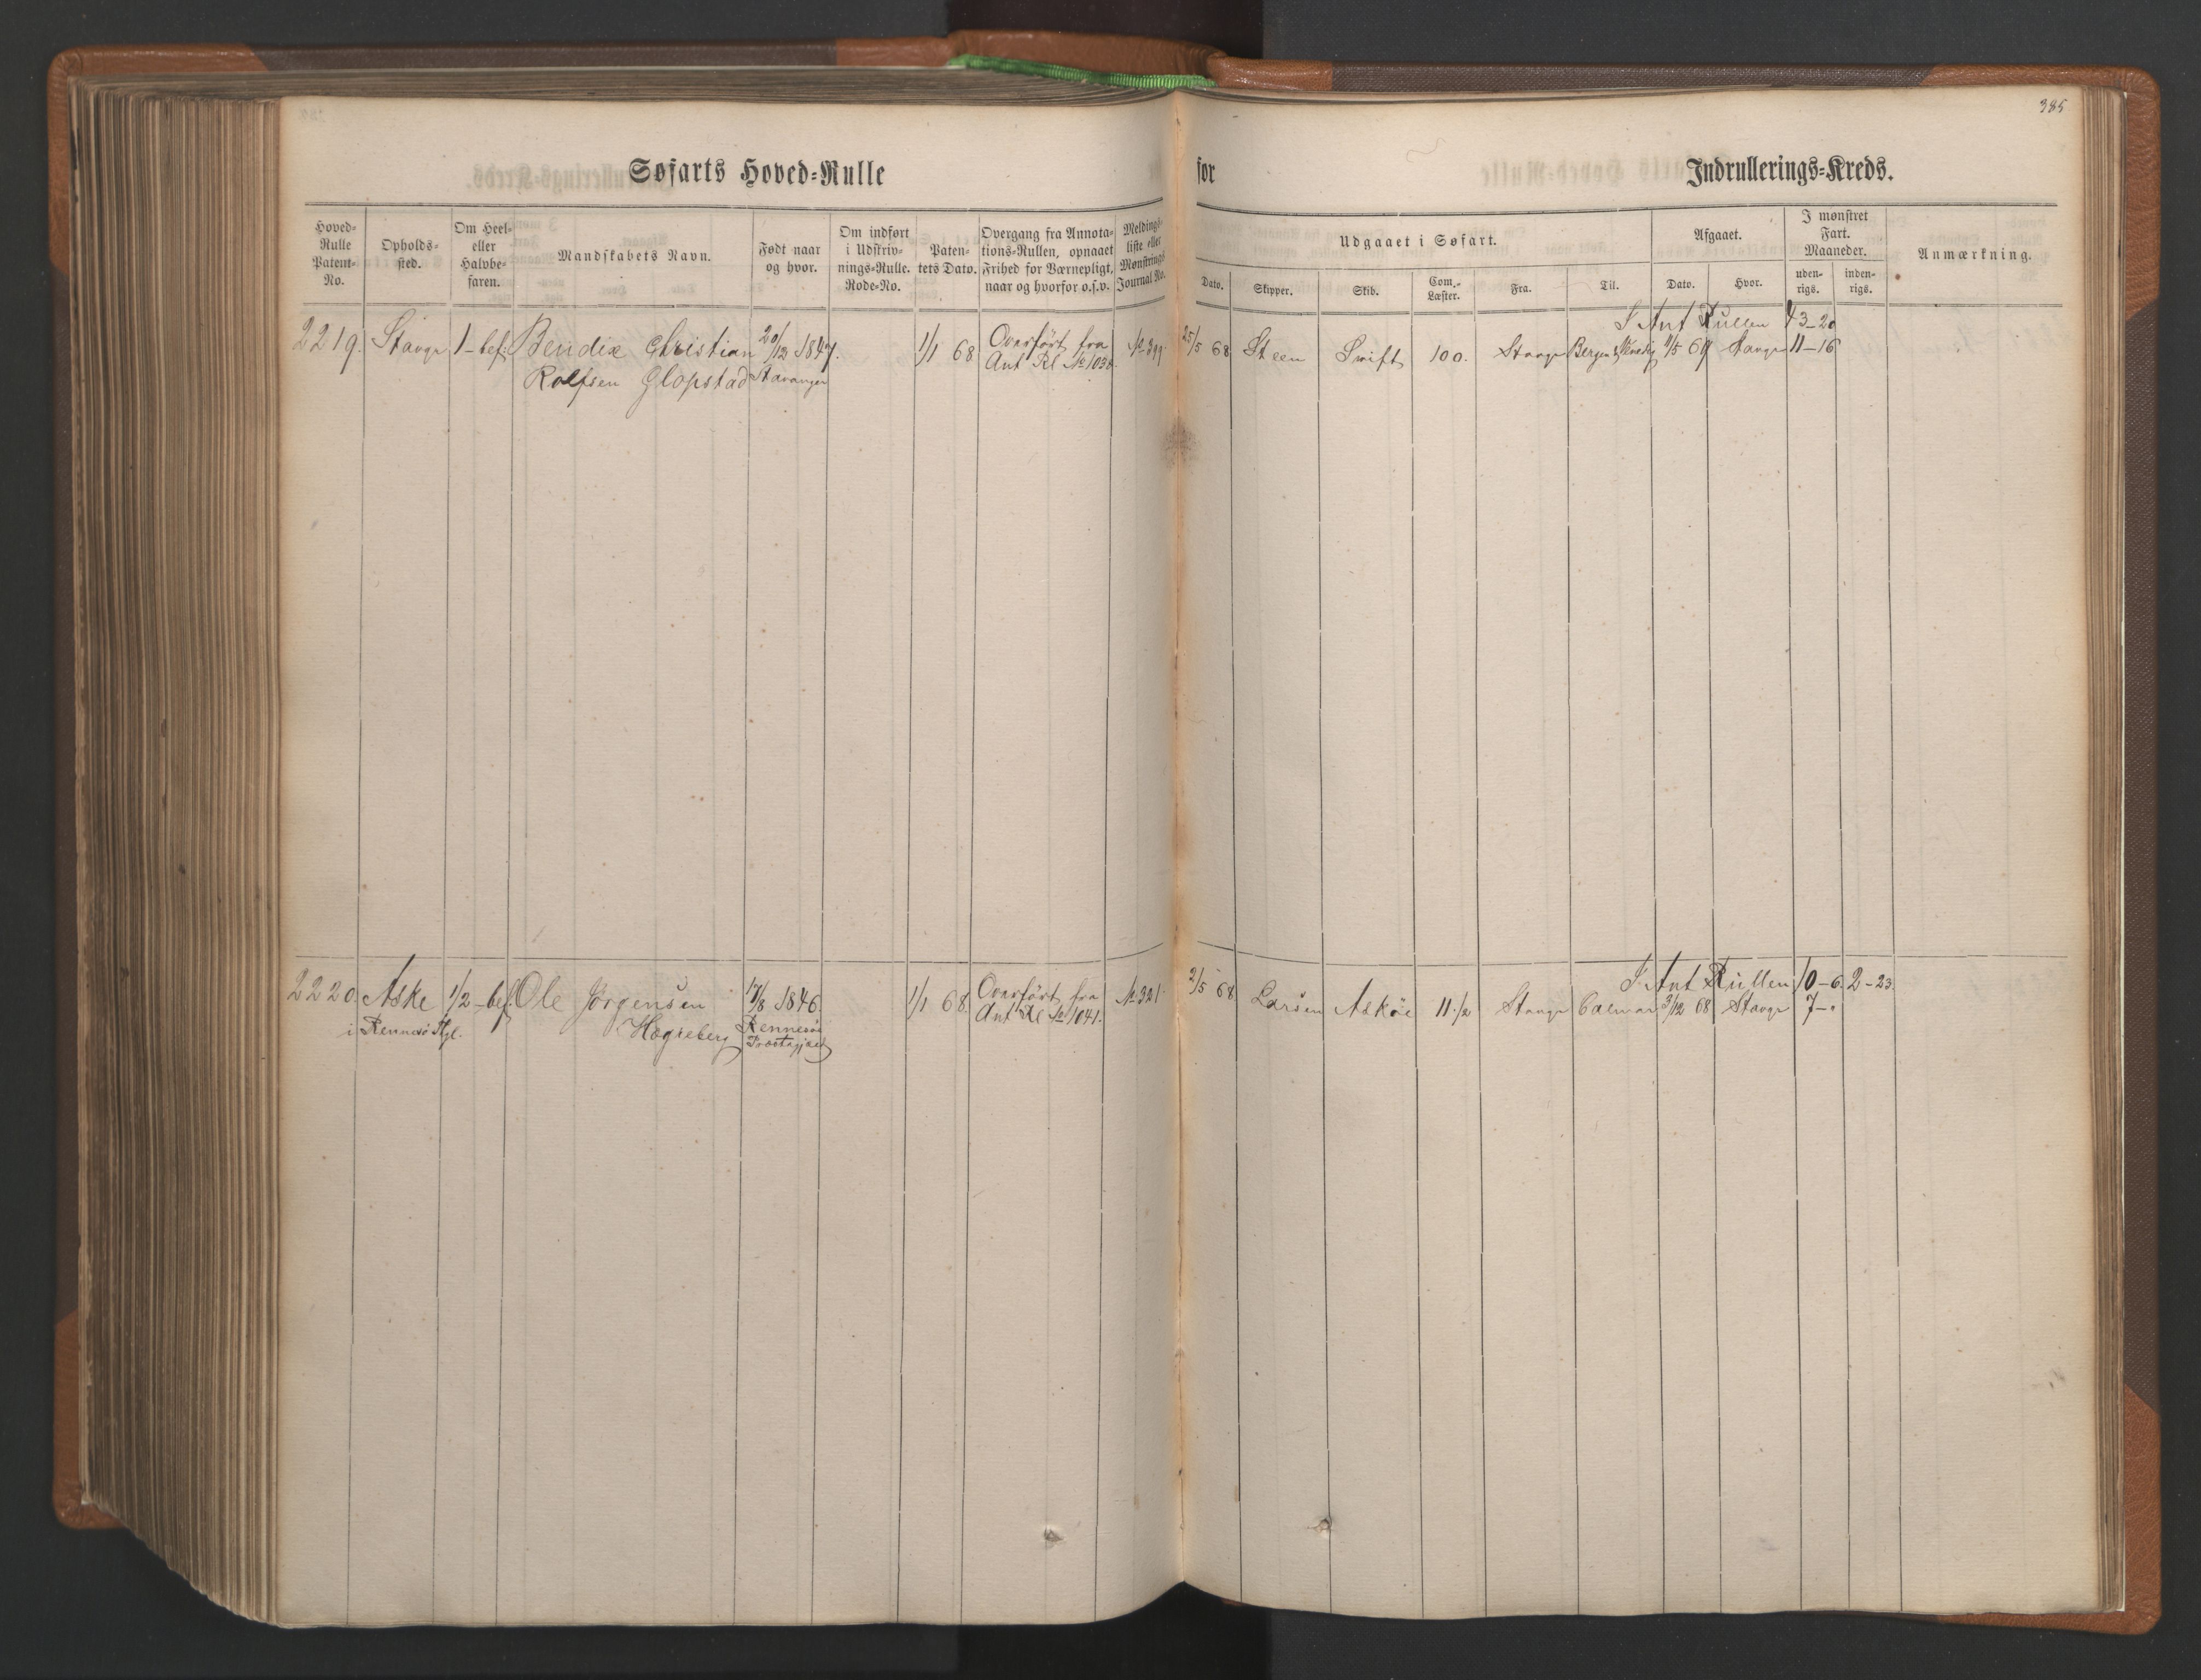 385
Søfarts Hoved-Rulle for Indrullerings-Kreds.
Hoved-Rulle Patent-No.
Opholds-sted.
Om Heel- eller Halvbe-faren.
Mandskabets Navn.
Født naar og hvor.
Om indført i Udskriv-nings-Rulle. Rode-No.
Paten-tets Dato.
Overgang fra Annota-tions-Rullen, opnaaet Frihed for Værnepligt, naar og hvorfor o.s.v.
Meldings-liste eller Mønstrings Journal No.
Udgaaet i Søfart.
Dato.
Skipper.
Skib.
Com.-Læster.
Fra.
Til.
Afgaaet.
Dato.
Hvor.
I mønstret Fart. Maaneder.
uden-rigs.
inden-rigs.
Anmærkning.
I Ant Rullen 43-20
2219. Stavgr 1-bef: Bendix Christian 20/12 1847. 1/1 68 Overført fra No 399 25/5 68 Steen Swift 100. Stavgr Bergen 11/5 69 Stavgr 11-16
Rolfsen Glopstad Stavanger Ant Rl No 1038.
I Ant Rullen 10-6. 2-23.
2220. Aske 1/2-bef. Ole Jørgensen 17/8 1846. 1/1 68. Overført fra No 321. 2/5 68. Larsen Askøe 11 1/2 Stavgr Calmar 3/12 68 Stavgr 7-"
i Rennesø Pgl. Hogreberg Rennesøe Præstegjæld Ant Rl No 1041.